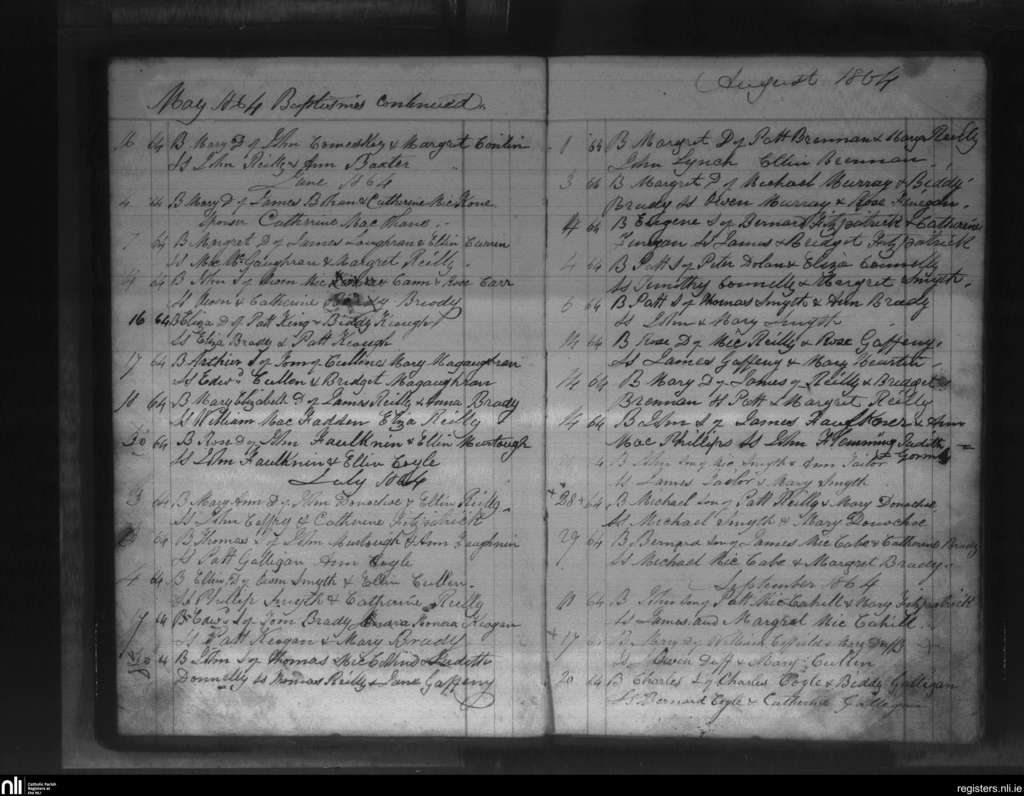 May 1864 Baptisms Continued.
16 64 B Mary D of John Comeskey & Margret Conlin
Ss John Reilly & Ann Baxter
June 1864
4 64 B Mary D of James & Catherine
Sponsor Catherine Mac
7 64 B Margret D of James & Ellin Curren
Ss Mic McGaughran & Margret Reilly.
14 64 B John S of Owen Mc & Rose Carr
Ss Owen & Catherine Brody
16 64 B Eliza D of Patt King & Biddy Keough
Ss Eliza Brady & Patt Keough
17 64 B Arthur S of Cullin & Mary Magaughran
Ss Edwd Cullen & Bridget Magaughran
18 64 B Mary Elizabeth D of James Reilly & Anna Brady
Ss William Mac Fadden Eliza Reilly
64 B Rose D of John Faulknin & Ellin Murtough
Ss John Faulknin & Ellin Coyle
July 1864
3 64 B Mary Ann D of John Donochoe & Ellin Reilly.
Ss John Caffrey & Catherine Fitzpatrick
64 B Thomas S of John Murtough & Ann
Ss Patt Galligan Ann Coyle
4 64 B Ellin D of Owen Smyth & Ellin Cullen.
Ss Phillip Smyth & Catherine Reilly
17 64 B Edwd S of Tom Brady Honora Keogan
Ss Patt Keogan & Mary Brady
64 B John S of Thomas & Judith
Donnelly Ss Thomas Reilly & Jane Gaffeny
August 1864
1 64 B Margret D of Patt Brennan & Reilly
John Lynch Ellin Brennan
3 64 B Margret D of Michael Murray & Biddy
Brady Ss Owen Murray & Rose Finegan.
4 64 B Eugene S of Bernard Fitzpatrick & Catherine
Finegan Ss James & Bridget Fitzpatrick
4 64 B Patt S of Peter Dolan & Eliza Connelly
Ss Timothy Connelly & Margret Smyth.
6 64 B Patt S of Thomas Smyth & Ann Brady
Ss John & Mary Smyth
14 64 B Rose D of Mic Reilly & Rose Gaffeny.
Ss James Gaffeny & Mary
14 64 B Mary D of James Reilly & Bridget
Brennan Ss Patt & Margret Reilly
14 64 B John S of James Faulkner & Ann
Mac Phillips Ss John Flemming Judith
B John Son of Mic Smyth & Ann Tailor
Ss James Tailor & Mary Smyth
28 64 B Michael Son of Patt Reilly & Mary Donochoe
Ss Michael Smyth & Mary Donochoe
29 64 B Bernard Son of James Mc Cabe & Catherine Brady
Ss Michael Mc Cabe & Margret Brady.
September 1864
11 64 B John Son of Patt Mc Cahill & Mary Fitzpatrick
Ss James and Margret Mc Cahill
17 B Mary D of William & Mary Duff
Ss Owen Duff & Mary Cullin
20 64 B Charles S of Charles Coyle & Biddy Galligan
Ss Bernard Coyle & Catherine Galligan
nli Catholic Parish Registers at the NLI
registers.nli.ie